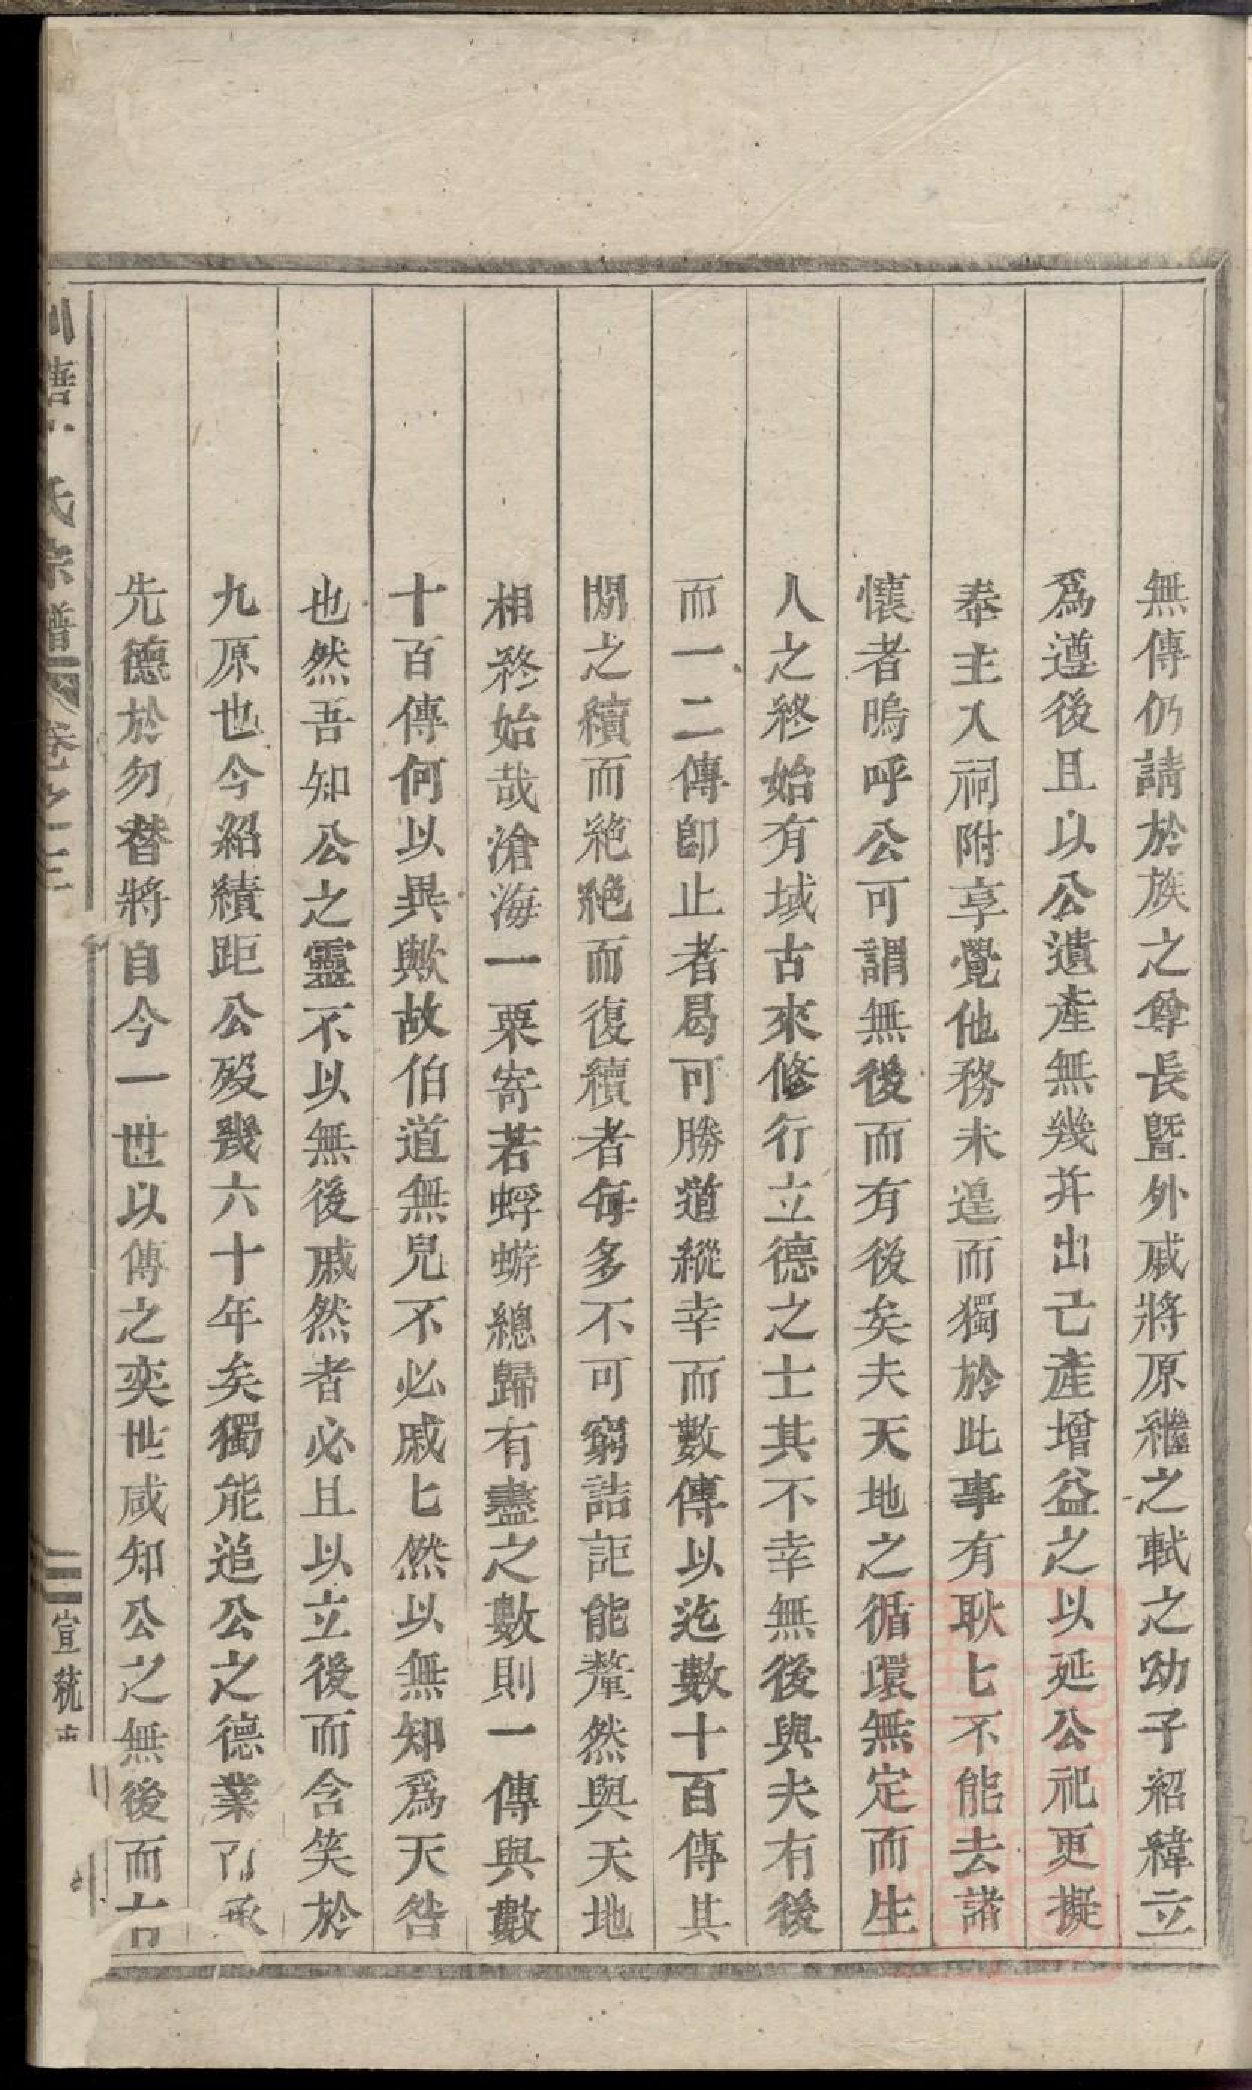 無傳仍請於族之尊長暨外戚將原繼之軾之幼子紹緯立
爲遵後且以公遺產無幾并出己產增益之以延公祀更擬
奉主入祠附享覺他務未遑而獨於此事有耿匕不能去諸
懷者嗚呼公可謂無後而有後矣夫天地之循環無定而生
人之終始有域古來修行立德之士其不幸無後與夫有後
而一二傳卽止者曷可勝道縱幸而數傳以迄數十百傳其
閒之續而絕絕而復續者每多不可窮詰詎能犛然與天地
相終始哉滄海一粟寄若蜉蝣總歸有盡之數則一傳與數
十百傳何以異歟故伯道無兒不必戚匕然以無知爲天咎
也然吾知公之靈不以無後戚然者必且以立後而含笑於
九原也今紹續距公歿幾六十年矣獨能追公之德業而承
先德於勿替將自今一世以傳之奕世咸知公之無後而
氏宗譜 卷之三
宣統